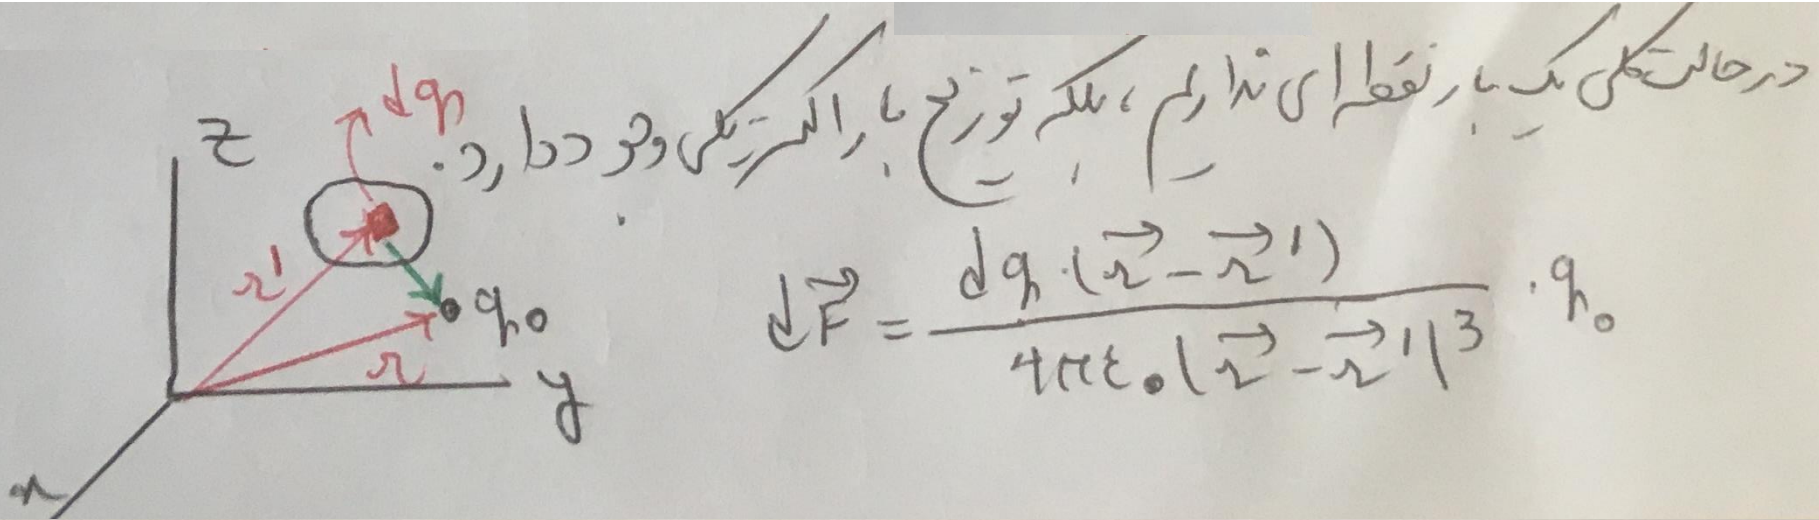 در حالت کلی یک بار نقطه ای نداریم، بلکه توزیع بار الکتریکی وجود دارد.
dq
z
r'
q₀
r
y
x
dF⃗ = dq.(r⃗ - r⃗ ') / 4πε₀|r⃗ - r⃗ '|³ . q₀